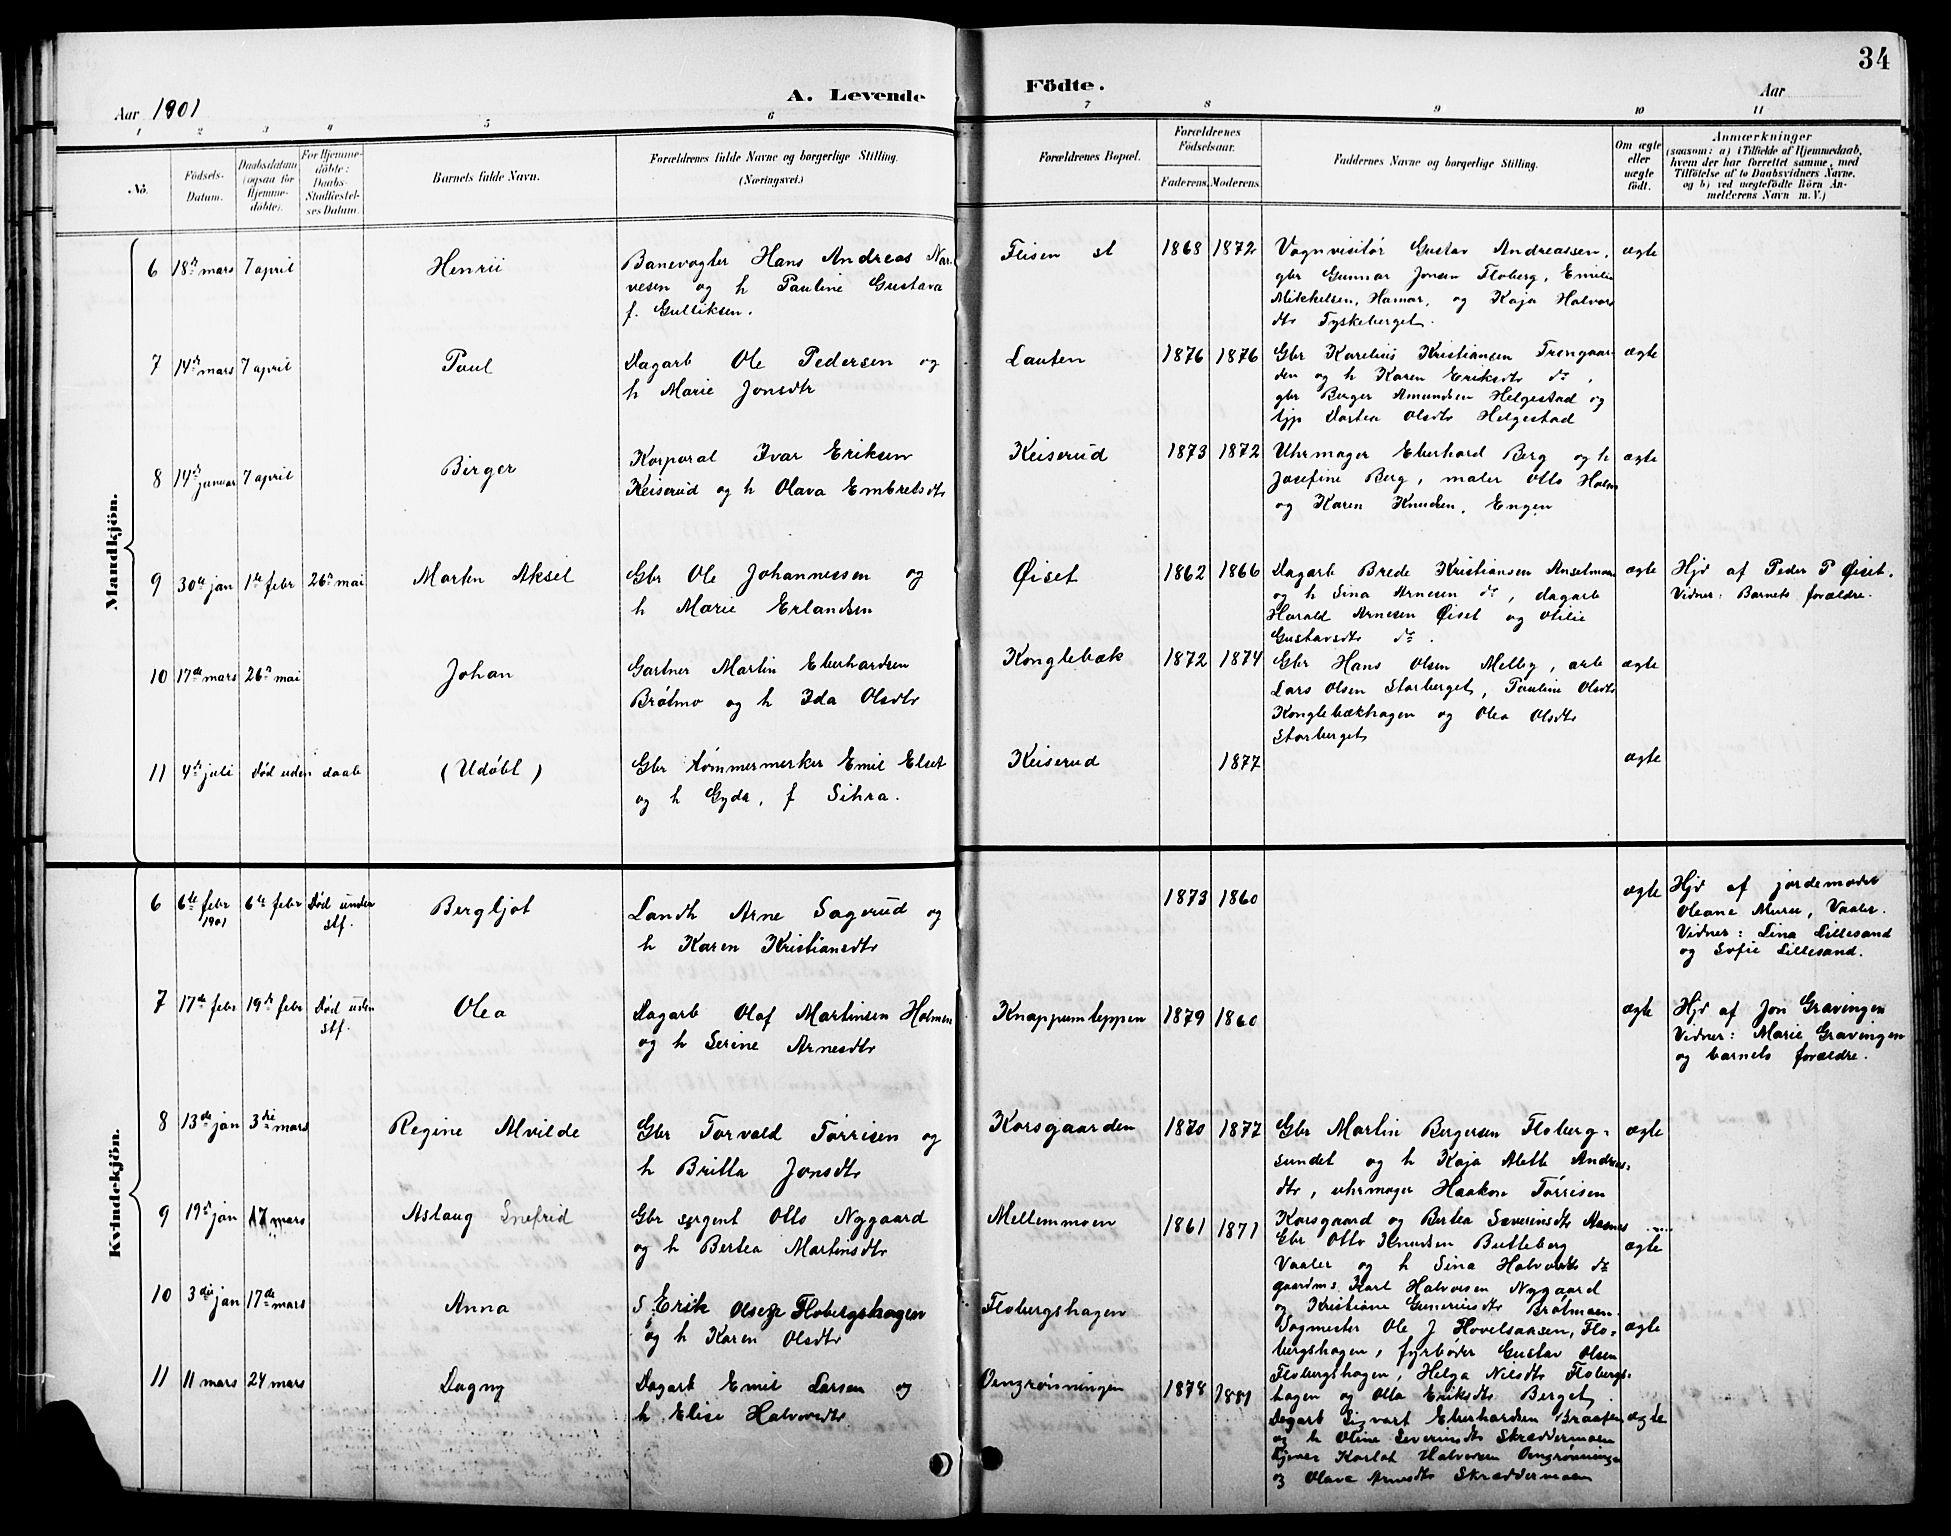 34
Aar 1901
A. Levende Födte.
Aar
1 2 3 4 5 6 7 8 9 10 11
No.
Födsels-
Datum.
Daabsdatum
(ogsaa for
Hjemme-
döbte).
For Hjemme-
döbte:
Daabs-
Stadfæstel-
ses Datum.
Barnets fulde Navn.
Forældrenes fulde Navne og borgerlige Stilling.
(Næringsvei.)
Forældrenes Bopæl.
Forældrenes
Födselsaar.
Faderens. Moderens.
Faddernes Navne og borgerlige Stilling.
Om ægte
eller
uægte
födt.
Anmærkninger
(saasom: a) i Tilfælde af Hjemmedaab,
hvem der har forrettet samme, med
Tilföielse af to Daabsvidners Navne.
og b) ved uegtefödte Börn An-
melderens Navn m. V.)
Mandkjön.
6 18de mars 7 april
Henrii
Banevogter Hans Andreas Nar-
vesen og h Pauline Gustava
f. Gulliksen.
Flisen st
1868 1872
Vognvisitør Gustav Andreassen,
gbr Gunnar Jonsen Floberg, Emilie
Mikkelsen, Hamar, og Kaja Halvors
dtr Tyskeberget.
ægte
7 14de mars 7 april
Paul
Dagarb Ole Pedersen og
h Marie Jonsdtr
Lauten
1876 1876
Gbr Karelius Kristiansen Trengaar
den og h Karen Eriksdtr do,
gbr Berger Amundsen Helgestad og
tjp Dortea Olsdtr Helgestad
ægte
8 14de januar 7 april
Birger
Korporal Ivar Eriksen
Keiserud og h Olava Embretsdtr
Keiserud
1873 1872
Uhrmager Eberhard Berg og h
Josefine Berg, maler Otto Holm
og Karen Knudsen, Engen
ægte
9 30te jan 1ste febr 26de mai
Marten Aksel
Gbr Ole Johannessen og
h Marie Erlandsen
Øiset
1862 1866
Dagarb Brede Kristiansen Anselmoen
og h Sina Arnesen do, dagarb
Harald Arnesen Øiset og Otilie
Gustavsdtr do.
ægte
Hjd af Peder P Øiset.
Vidner: Barnets forældre.
10 17de mars 26de mai
Johan
Gartner Martin Eberhardsen
Bråtmo og h Ida Olsdtr
Konglebæk
1872 1874
Gbr Hans Olsen Melby, arb
Lars Olsen Storberget, Pauline Olsdtr
Konglebækhagen og Olea Olsdtr
Storberget
ægte
11 4de juli Død uden daab
(Udøbt)
Gbr tømmermerker Emil Elset
og h Gyda, f Sihra.
Keiserud
1877
ægte
Kvindekjön.
6 6te febr 6te febr Død under
1901 stf.
Bergljot
Landh Arne Sagerud og
h Karen Kristiansdtr
1873 1860
ægte
Hjd af jordemoder
Oleane Murer, Vaaler.
Vidner: Lina Lillesand
og Sofie Lillesand.
7 17de febr 19de febr Død uden
stf.
Olea
Dagarb Olaf Martinsen Holmen
og h Serine Arnesdtr
Knappumteppen
1879 1860
ægte
Hjd af Jon Gravingen
Vidner: Marie Gravingen
og barnets forældre.
8 13de jan 3die mars
Regine Alvilde
Gbr Torvald Tørrisen og
h Britta Jonsdtr
Korsgaarden
1870 1877
Gbr Martin Bergersen Floberg-
sundet og h Kaja Mette Andreas-
dtr, uhrmager Haakon Tørrisen
Korsgaard og Bertea Severinsdtr Mosnes
ægte
9 19de jan 17 mars
Aslaug Snefrid
Gbr sergent Otto Nygaard
og h Bertea Martinsdtr
Mellemmoen
1861 1871
Gbr Otto Knudsen Butteberg
Vaaler og h Sina Halvorsdtr do
gaardm. Karl Halvorsen Nygaard
og Kristiane Gunerinsdtr Bråtmoen.
ægte
10 3die jan 17de mars
Anna
S Erik Olsen Flobergshagen
og h Karen Olsdtr
Flobergshagen
Sagmester Ole J Hovelsaasen, Flo-
bergshagen, fyrbøder Gustav Olsen
Flobergshagen, Helga Nilsdtr Flobergs-
hagen og Olla Eriksdtr Berget
ægte
11 11 mars 24 mars
Dagny
Dagarb Emil Larsen og
h Elise Halvorsdtr
Ovngrønningen
1878 1881
Dagarb Sigvart Eberhardsen Braaten
og h Oline Severinsdtr Skræddermoen
Karlot Halvorsen Ovngrønningen
og Olava Arnesdtr Skræddermoen
ægte